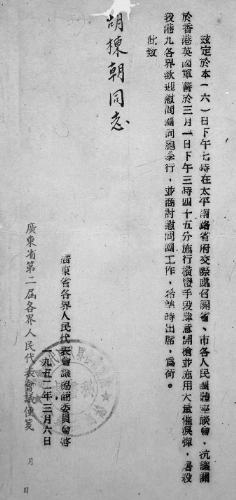 茲定於本(六)日下午七時在太平南路省府交際處召開省、市各人民團體座談會,抗議關
於香港英國軍警於三月一日下午三時四十五分施行橫蠻手段肆意開槍並施用大量催淚彈,屠殺
我港九各界歡迎慰問團同胞暴行,並商討慰問團工作,希準時出席,爲荷。
此致
胡棟朝同志
廣東省各界人民代表會議協商委員會啓
一九五二年三月六日
廣東省第二屆各界人民代表會議便箋
月
日